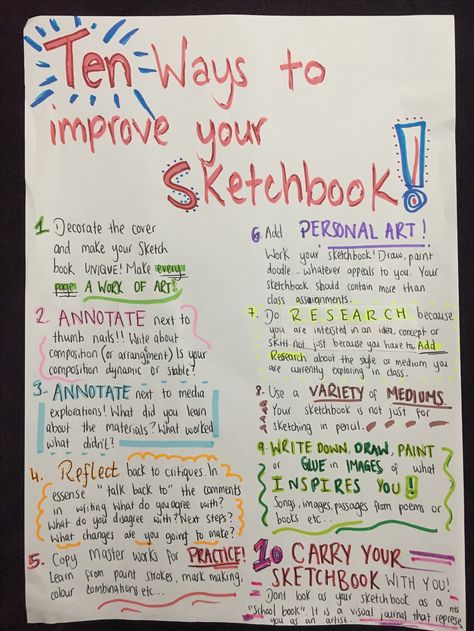 Ten Ways to
improve your
Sketchbook!
1 Decorate the cover
and make your Sketch
book UNIQUE! Make every
page A WORK OF ART!
2. ANNOTATE next to
thumb nails!! Write about
composition (or arrangment) Is your
composition dynamic or stable?
3. ANNOTATE next to media
explorations! What did you learn
about the materials? What worked
what didn't?
4. Reflect back to critiques. In
essense "talk back to" the comments
in writing. What do you agree with?
What do you disagree with? Next steps?
What changes are you going to make?
5. Copy master works for PRACTICE!
Learn from paint strokes, mark making,
colour combinations etc...
6. Add PERSONAL ART!
Work your sketchbook! Draw, paint
doodle... whatever appeals to you. Your
Sketchbook should contain more than
class assignments.
7. Do RESEARCH because
you are intersted in an idea, concept or
skill not just because you have to. Add
Research about the style or medium you
are currently exploring in class.
8. Use a VARIETY of MEDIUMS.
Your sketchbook is not just for
sketching in pencil.
9. WRITE DOWN, DRAW, PAINT
or GLUE in IMAGES of what
INSPIRES YOU!
Songs, images, passages from poems or
books etc...
10 CARRY YOUR
SKETCHBOOK WITH YOU!
Dont look as your sketchbook as a
"school book". It is a visual journal that represe
you as an artist.